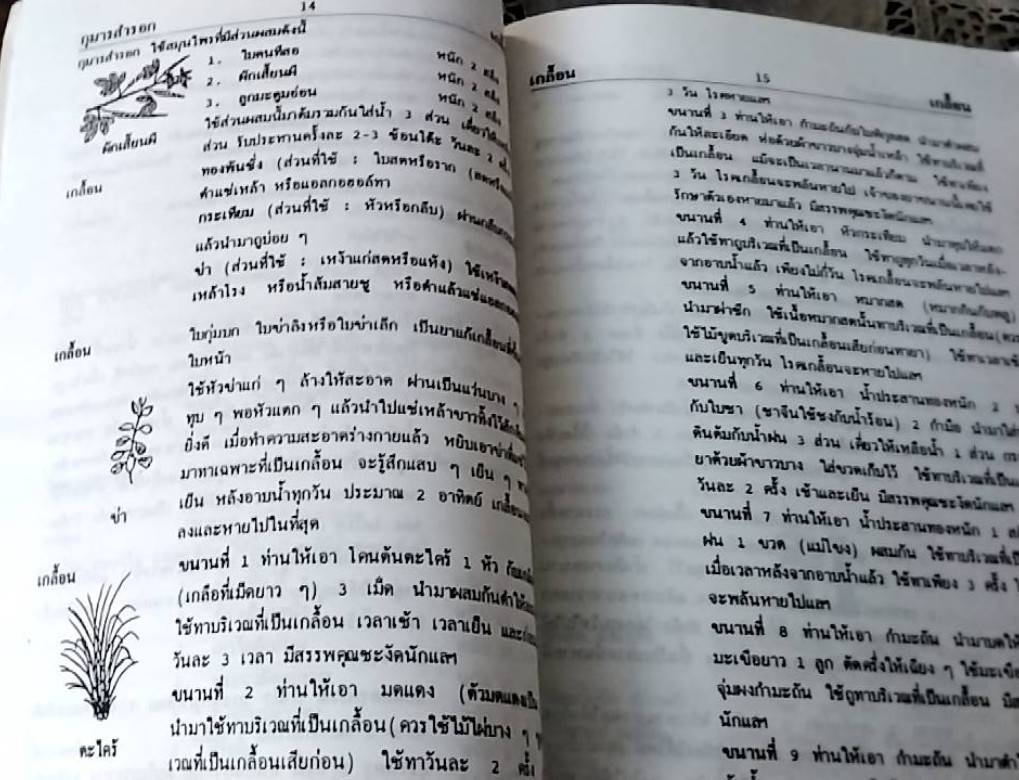 14
กุมารสำรอก
กุมารสำรอก ใช้สมุนไพรที่มีส่วนผสมดังนี้
1. ใบคนทีสอ หนัก 2 สลึง
2. ผักเสี้ยนผี หนัก 2 สลึง
3. ลูกมะตูมอ่อน หนัก 2 สลึง
ใช้ส่วนผสมนี้มาต้มรวมกันใส่น้ำ 3 ส่วน เคี่ยวให้
ส่วน รับประทานครั้งละ 2-3 ช้อนโต๊ะ วันละ 2
ผักเสี้ยนผี
เกลื้อน
ทองพันชั่ง (ส่วนที่ใช้ : ใบสดหรือราก (สดหรือ
ตำแช่เหล้า หรือแอลกอฮอล์ทา
กระเทียม (ส่วนที่ใช้ : หัวหรือกลีบ) ฝานกลีบ
แล้วนำมาถูบ่อย ๆ
ข่า (ส่วนที่ใช้ : เหง้าแก่สดหรือแห้ง) ใช้เหง้า
เหล้าโรง หรือน้ำส้มสายชู หรือตำแล้วแช่แอลกอฮอล์
เกลื้อน
ใบกุ่มบก ใบข่าลิงหรือใบข่าเล็ก เป็นยาแก้เกลื้อน
ใบหน้า
ใช้หัวข่าแก่ ๆ ล้างให้สะอาด ฝานเป็นแว่นบาง ๆ
ทุบ ๆ พอหัวแตก ๆ แล้วนำไปแช่เหล้าขาวทิ้งไว้
ยิ่งดี เมื่อทำความสะอาดร่างกายแล้ว หยิบเอาข่า
มาทาเฉพาะที่เป็นเกลื้อน จะรู้สึกแสบ ๆ เย็น ๆ
เย็น หลังอาบน้ำทุกวัน ประมาณ 2 อาทิตย์ เกลื้อน
ลงและหายไปในที่สุด
ข่า
เกลื้อน
ขนานที่ 1 ท่านให้เอา โคนต้นตะไคร้ 1 หัว กับ
(เกลือที่เม็ดยาว ๆ) 3 เม็ด นำมาผสมกันตำให้
ใช้ทาบริเวณที่เป็นเกลื้อน เวลาเช้า เวลาเย็น และ
วันละ 3 เวลา มีสรรพคุณชะงัดนักแลฯ
ขนานที่ 2 ท่านให้เอา มดแดง (ตัวมดแดง
นำมาใช้ทาบริเวณที่เป็นเกลื้อน(ควรใช้ไม้ไผ่บาง ๆ
เวณที่เป็นเกลื้อนเสียก่อน) ใช้ทาวันละ 2 ครั้ง
ตะไคร้
เกลื้อน 15 เกลื้อน
3 วัน โรคหายแลฯ
ขนานที่ 3 ท่านให้เอา กำมะถันกับใบพิกุลสด นำมาตำผสม
กันให้ละเอียด ห่อด้วยผ้าขาวบางชุบน้ำเหล้า ใช้ทาบริเวณที่
เป็นเกลื้อน แม้จะเป็นเวลานานมาแล้วก็ตาม ใช้ทาเพียง
3 วัน โรคเกลื้อนจะพลันหายไป เจ้าของยาขนานนี้เคยใช้
รักษาตัวเองหายมาแล้ว มีสรรพคุณชะงัดนักแลฯ
ขนานที่ 4 ท่านให้เอา หัวกระเทียม นำมาทุบให้แตก
แล้วใช้ทาถูบริเวณที่เป็นเกลื้อน ใช้ทาถูทุกวันเมื่อเวลาหลัง-
จากอาบน้ำแล้ว เพียงไม่กี่วัน โรคเกลื้อนจะพลันหายไปแลฯ
ขนานที่ 5 ท่านให้เอา หมากสด (หมากกินกับพลู)
นำมาผ่าซีก ใช้เนื้อหมากสดนั้นทาบริเวณที่เป็นเกลื้อน(ควร
ใช้ไม้ขูดบริเวณที่เป็นเกลื้อนเสียก่อนทายา) ใช้ทาเวลาเช้า
และเย็นทุกวัน โรคเกลื้อนจะหายไปแลฯ
ขนานที่ 6 ท่านให้เอา น้ำประสานทองหนัก 2
กับใบชา (ชาจีนใช้ชงกับน้ำร้อน) 2 กำมือ นำมาใส่
ดินต้มกับน้ำฝน 3 ส่วน เคี่ยวให้เหลือน้ำ 1 ส่วน
ยาด้วยผ้าขาวบาง ใส่ขวดเก็บไว้ ใช้ทาบริเวณที่เป็น
วันละ 2 ครั้ง เช้าและเย็น มีสรรพคุณชะงัดนักแลฯ
ขนานที่ 7 ท่านให้เอา น้ำประสานทองหนัก 1
ฝน 1 ขวด (แม่โขง) ผสมกัน ใช้ทาบริเวณที่
เมื่อเวลาหลังจากอาบน้ำแล้ว ใช้ทาเพียง 3 ครั้ง
จะพลันหายไปแลฯ
ขนานที่ 8 ท่านให้เอา กำมะถัน นำมาบดให้
มะเขือยาว 1 ลูก ตัดครึ่งให้เฉียง ๆ ใช้มะเขือ
จุ่มผงกำมะถัน ใช้ถูทาบริเวณที่เป็นเกลื้อน
นักแลฯ
ขนานที่ 9 ท่านให้เอา กำมะถัน นำมาตำ